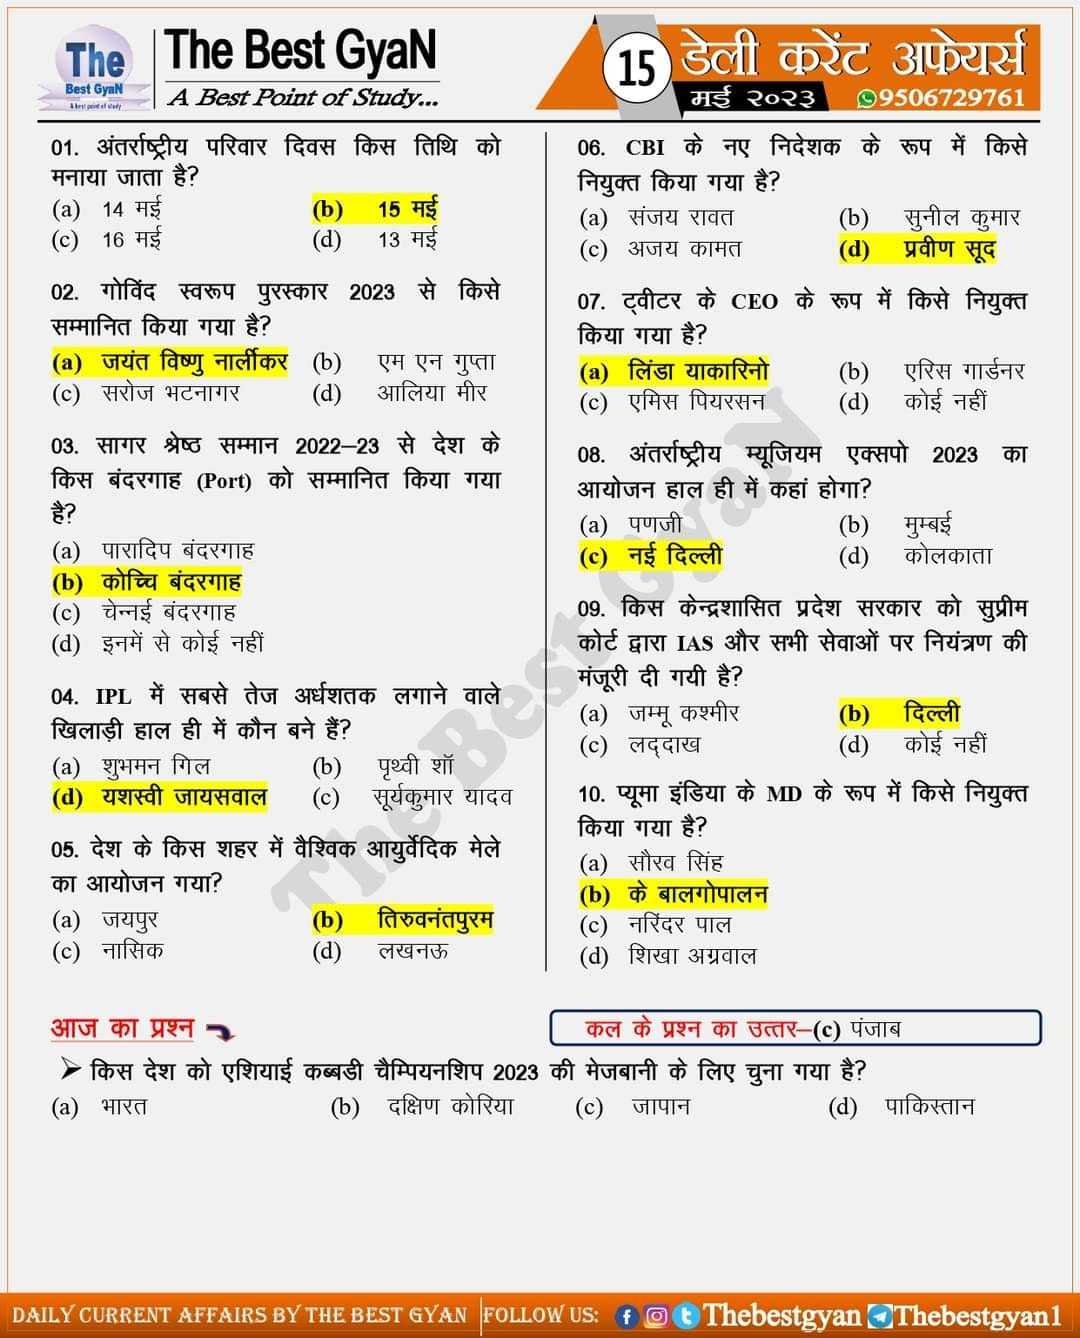 The
Best GyaN
A best point of study
The Best GyaN
A Best Point of Study...
15 डेली करेंट अफेयर्स
मई २०२३ 9506729761
01. अंतर्राष्ट्रीय परिवार दिवस किस तिथि को
मनाया जाता है?
(a) 14 मई (b) 15 मई
(c) 16 मई (d) 13 मई
02. गोविंद स्वरूप पुरस्कार 2023 से किसे
सम्मानित किया गया है?
(a) जयंत विष्णु नार्लीकर (b) एम एन गुप्ता
(c) सरोज भटनागर (d) आलिया मीर
03. सागर श्रेष्ठ सम्मान 2022–23 से देश के
किस बंदरगाह (Port) को सम्मानित किया गया
है?
(a) पारादिप बंदरगाह
(b) कोच्चि बंदरगाह
(c) चेन्नई बंदरगाह
(d) इनमें से कोई नहीं
04. IPL में सबसे तेज अर्धशतक लगाने वाले
खिलाड़ी हाल ही में कौन बने हैं?
(a) शुभमन गिल (b) पृथ्वी शॉ
(d) यशस्वी जायसवाल (c) सूर्यकुमार यादव
05. देश के किस शहर में वैश्विक आयुर्वेदिक मेले
का आयोजन गया?
(a) जयपुर (b) तिरुवनंतपुरम
(c) नासिक (d) लखनऊ
06. CBI के नए निदेशक के रूप में किसे
नियुक्त किया गया है?
(a) संजय रावत (b) सुनील कुमार
(c) अजय कामत (d) प्रवीण सूद
07. ट्वीटर के CEO के रूप में किसे नियुक्त
किया गया है?
(a) लिंडा याकारिनो (b) एरिस गार्डनर
(c) एमिस पियरसन (d) कोई नहीं
08. अंतर्राष्ट्रीय म्यूजियम एक्सपो 2023 का
आयोजन हाल ही में कहां होगा?
(a) पणजी (b) मुम्बई
(c) नई दिल्ली (d) कोलकाता
09. किस केन्द्रशासित प्रदेश सरकार को सुप्रीम
कोर्ट द्वारा IAS और सभी सेवाओं पर नियंत्रण की
मंजूरी दी गयी है?
(a) जम्मू कश्मीर (b) दिल्ली
(c) लद्दाख (d) कोई नहीं
10. प्यूमा इंडिया के MD के रूप में किसे नियुक्त
किया गया है?
(a) सौरव सिंह
(b) के बालगोपालन
(c) नरिंदर पाल
(d) शिखा अग्रवाल
The Best GyaN
आज का प्रश्न
कल के प्रश्न का उत्तर–(c) पंजाब
किस देश को एशियाई कब्बडी चैम्पियनशिप 2023 की मेजबानी के लिए चुना गया है?
(a) भारत (b) दक्षिण कोरिया (c) जापान (d) पाकिस्तान
DAILY CURRENT AFFAIRS BY THE BEST GYAN FOLLOW US: Thebestgyan Thebestgyan1